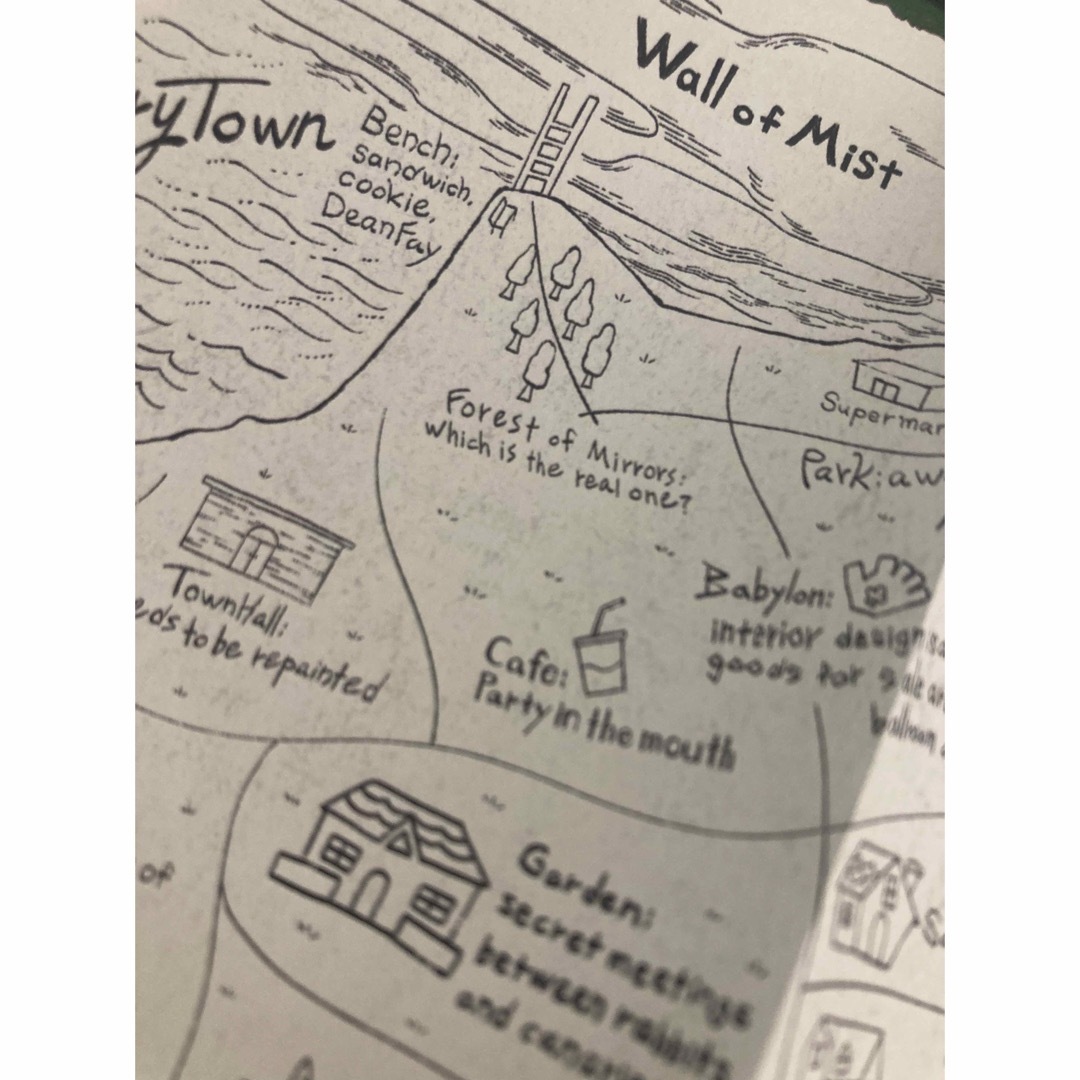 Wall of Mist
yTown
Bench:
sandwich,
cookie,
DeanFay
Forest of Mirrors:
which is the real one?
Supermar
Park: aw
TownHall:
eds to be repainted
Babylon:
interior design
goods for sale
balloon
Cafe:
Party in the mouth
of
Garden:
secret meetings
between rabbits
and